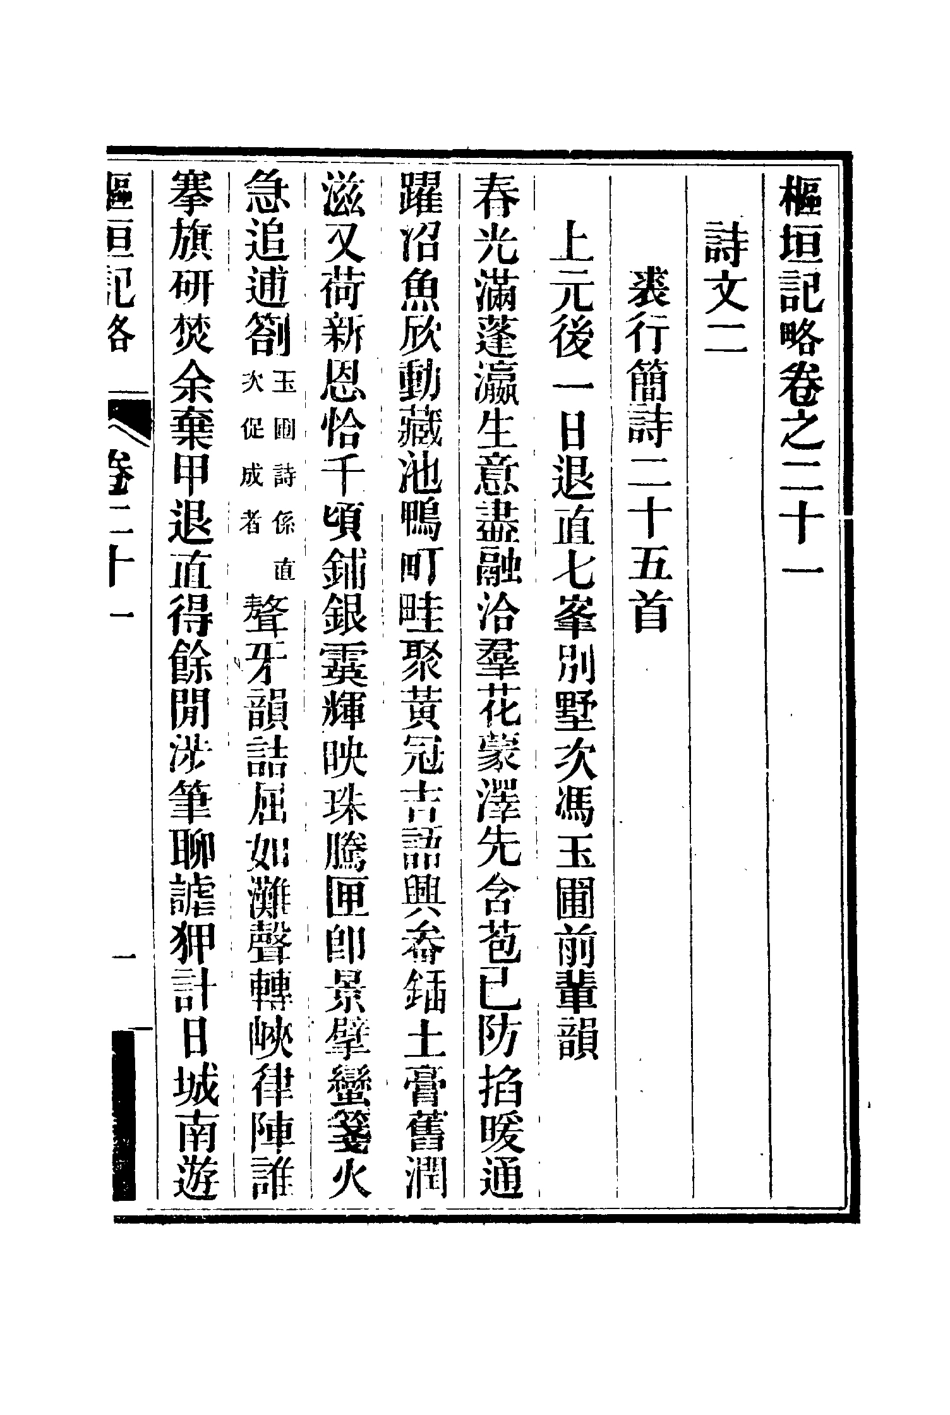 樞垣記略卷之二十一
詩文二
裘行簡詩二十五首
上元後一日退直七峯別墅次馮玉圃前輩韻
春光滿蓬瀛生意盡融洽羣花蒙澤先含苞已防掐暖通
躍沼魚欣動藏池鴨町畦聚黃冠吉語興畚鍤土膏舊潤
滋又荷新恩恰千頃鋪銀霙輝映珠騰匣卽景擘蠻箋火
急追逋劄玉圃詩係直次促成者聱牙韻詰屈如灘聲轉峽律陣誰
搴旗研焚余棄甲退直得餘閒涉筆聊謔狎計日城南遊
樞垣記略 卷二十一 一